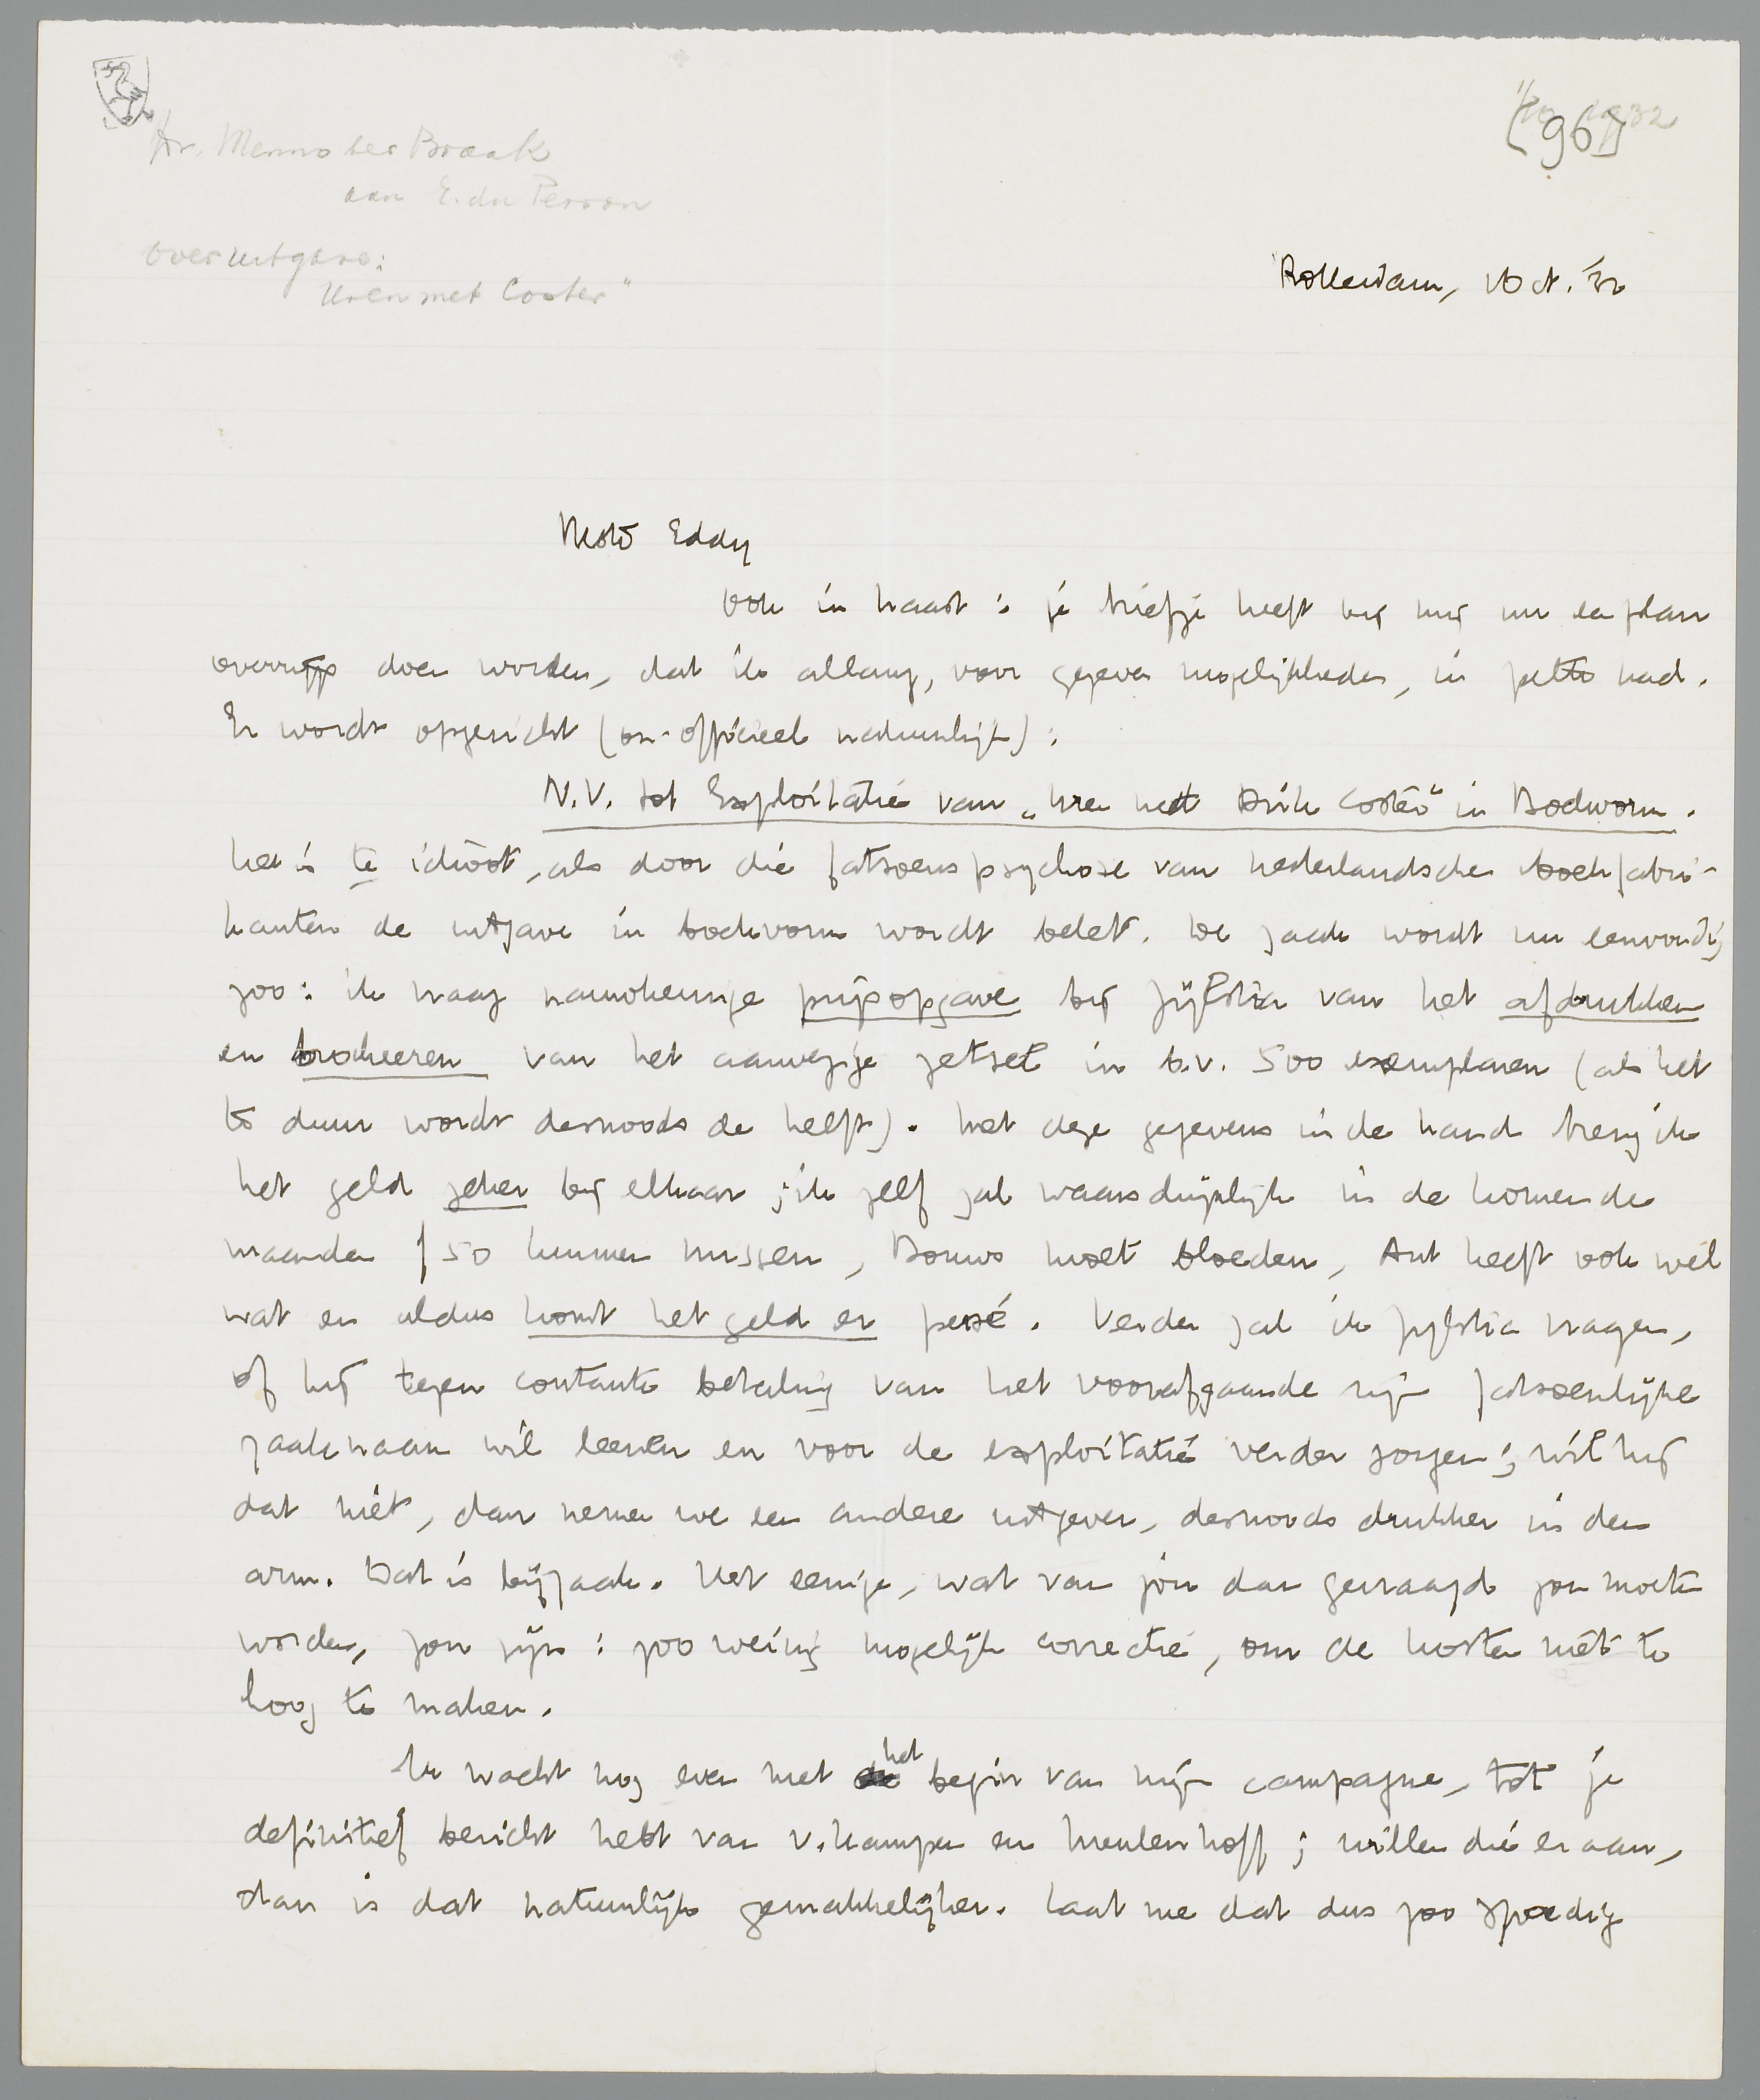 Dr. Menno ter Braak
aan E. du Perron
over uitgave:
Uren met Coster"
1932
[96]
Rotterdam, Oct. '32
Beste Eddy
Ook in haast: je briefje heeft bij mij nu een plan
doen worden, dat ik allang, voor gegeven mogelijkheden, in petto had.
Er wordt opgericht (on-officieel natuurlijk):
N.V. tot Exploitatie van „Uren met Dirk Coster" in Boekvorm.
Het is te idioot, als door die fatsoenspsychose van Nederlandsche boekfabri-
kanten de uitgave in boekvorm wordt belet. De zaak wordt nu eenvoudig
zoo: ik vraag nauwkeurige prijsopgave bij Zijlstra van het afdrukken
en brocheeren van het aanwezige zetsel in b.v. 500 exemplaren (als het
te duur wordt desnoods de helft). Met deze gegevens in de hand breng ik
het geld zeker bij elkaar; ik zelf zal waarschijnlijk in de komende
maanden f 50 kunnen missen, Bouws moet bloeden, Ant heeft ook wel
wat en aldus komt het geld er per se. Verder zal ik Zijlstra vragen,
of hij tegen contante betaling van het voorafgaande zijn fatsoenlijke
zaaknaam wil leenen en voor de exploitatie verder zorgen; wil hij
dat niet, dan nemen we een andere uitgever, desnoods drukker in den
arm. Dat is bijzaak. Het eenige, wat van jou dan gevraagd zou moeten
worden, zou zijn: zoo weinig mogelijk correctie, om de kosten niet te
hoog te maken.
Ik wacht nog even met het begin van mijn campagne, tot je
definitief bericht hebt van v. Kampen en Meulenhoff; willen die er aan,
dan is dat natuurlijk gemakkelijker. Laat me dat dus zoo spoedig